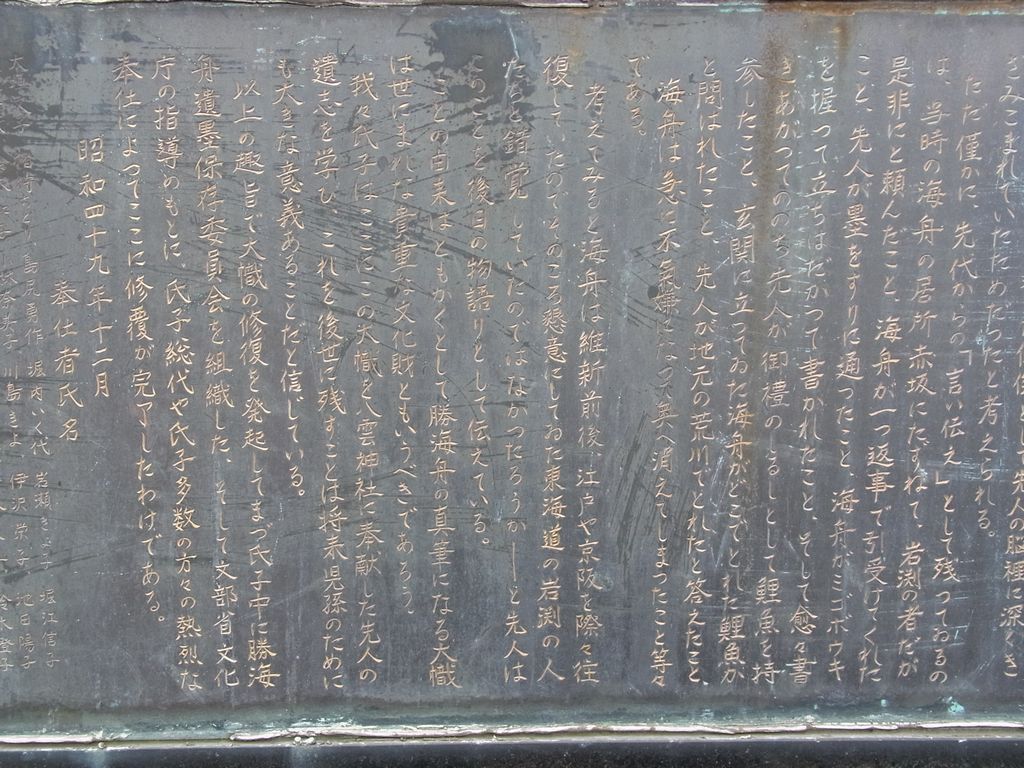 さみこまれていたためだったと考えられる。
ただ僅かに、先代からの「言い伝え」として残っておるの
は、当時の海舟の居所赤坂にたずねて、岩渕の者だが
是非にと頼んだこと、海舟が一つ返事で引受けてくれた
こと、先人が墨をすりに通ったこと、海舟がミゴボウキ
を握って立ちはだかって書かれたこと、そして愈々書
きあがってのち、先人が御礼のしるしとして鯉魚を持
参したこと、玄関に立ってゐた海舟がどこでとれた鯉魚か
と問はれたこと、先人が地元の荒川でとれたと答えたこと、
海舟は急に不気嫌になって奥へ消えてしまったこと等々
である。
考えてみると海舟は維新前後、江戸や京阪を際々往
復して、たのでそのころ懇意にしてゐた東海道の岩渕の人
だと錯覚してゐたのではなかったろうか―と先人は
このことを後日の物語りとして伝えている。
ことの由来はともかくとして勝海舟の真筆になる大幟
は世にまれな貴重な文化財ともいうべきであろう。
我々氏子はここにこの大幟を八雲神社に奉献した先人の
遺志を学び、これを後世に残すことは将来児孫のために
も大きな意義あることだと信じている。
以上の趣旨で大幟の修復を発起してまづ氏子中に勝海
舟遺墨保存委員会を組織した、そして文部省文化
庁の指導のもとに氏子総代や氏子多数の方々の熱烈な
奉仕によってここに修覆が完了したわけである。
昭和四十九年十二月
奉仕者氏名
堀内いく代 岩瀬き子 堀江信子
川島きよ 伊沢栄子 池田陽子